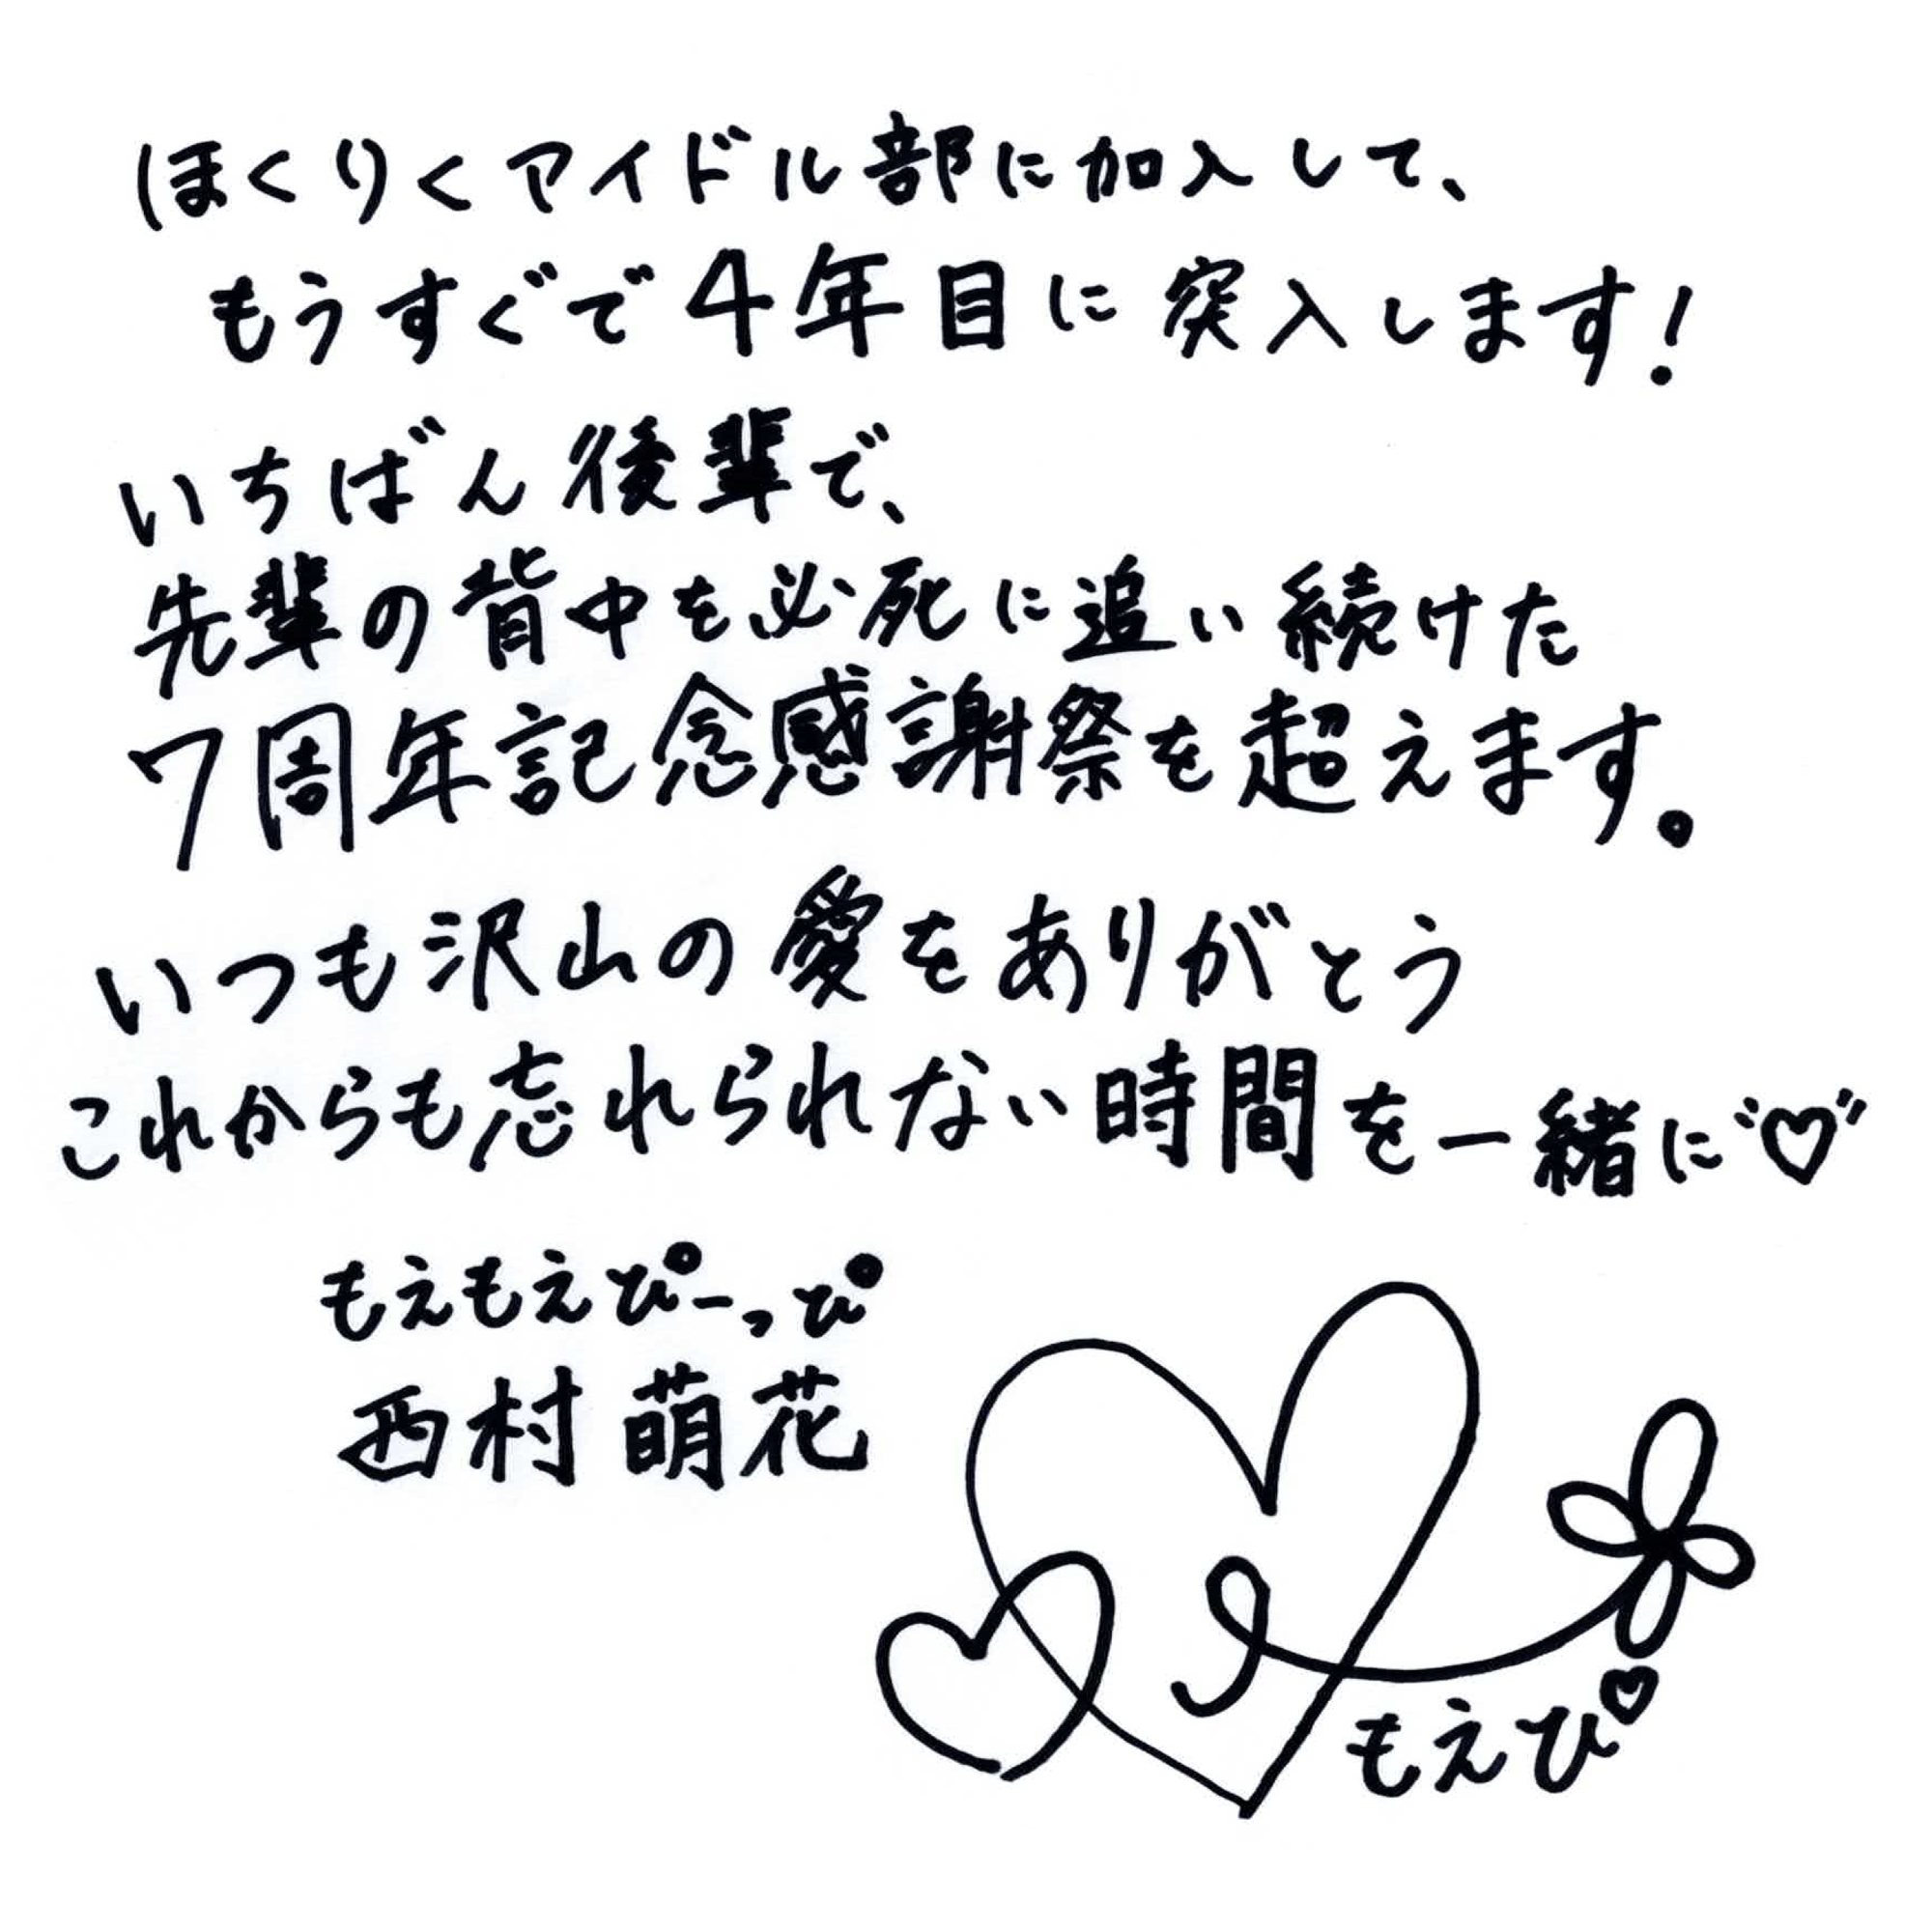 ほくりくアイドル部に加入して、
もうすぐで4年目に突入します!
いちばん後輩で、
先輩の背中を必死に追い続けた
7周年記念感謝祭を超えます。
いつも沢山の愛をありがとう
これからも忘れられない時間を一緒に♡
もえもえぴーっぴ
西村萌花
もえぴ